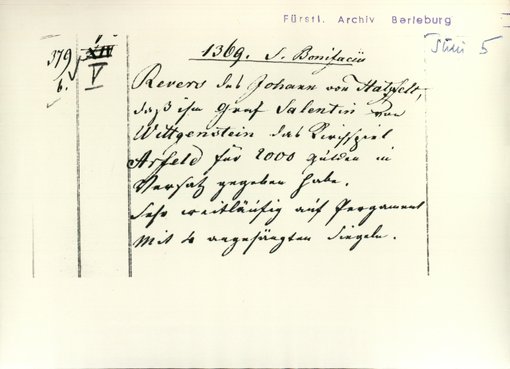 Fürstl. Archiv Berleburg
379
6.
XIV
V
1369. S. Bonifacii
5
Revers des Johann von Hatzfeld,
daß ihm Graf Salentin von
Wittgenstein das Kirchspiel
Arfeld für 2000 Gulden in
Versatz gegeben habe.
Sehr weitläufig auf Pergament
mit 4 angehängten Siegeln.